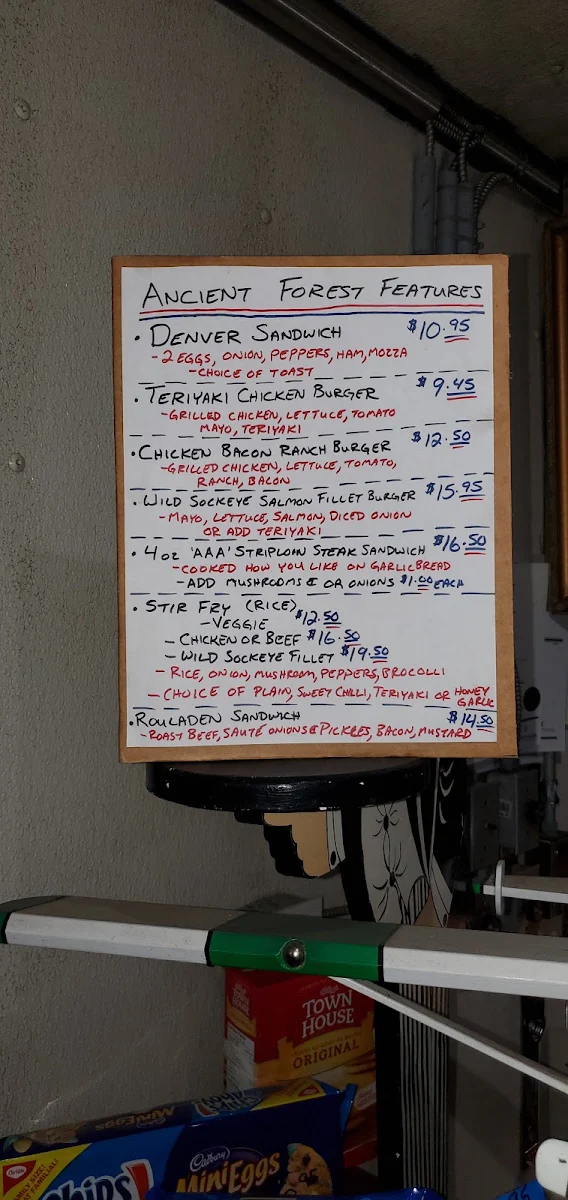 ANCIENT FOREST FEATURES
• DENVER SANDWICH $10.95
- 2 EGGS, ONION, PEPPERS, HAM, MOZZA
- CHOICE OF TOAST
• TERIYAKI CHICKEN BURGER $9.45
- GRILLED CHICKEN, LETTUCE, TOMATO
MAYO, TERIYAKI
• CHICKEN BACON RANCH BURGER $12.50
- GRILLED CHICKEN, LETTUCE, TOMATO,
RANCH, BACON
• WILD SOCKEYE SALMON FILLET BURGER $15.95
- MAYO, LETTUCE, SALMON, DICED ONION
OR ADD TERIYAKI
• 4 oz 'AAA' STRIPLOIN STEAK SANDWICH $16.50
- COOKED HOW YOU LIKE ON GARLIC BREAD
- ADD MUSHROOMS & OR ONIONS $1.00 EACH
• STIR FRY (RICE)
- VEGGIE $12.50
- CHICKEN OR BEEF $16.50
- WILD SOCKEYE FILLET $19.50
- RICE, ONION, MUSHROOM, PEPPERS, BROCOLLI
- CHOICE OF PLAIN, SWEET CHILLI, TERIYAKI OR HONEY
GARLIC
• ROULADEN SANDWICH $14.50
- ROAST BEEF, SAUTE ONIONS & PICKLES, BACON, MUSTARD
TOWN
HOUSE
ORIGINAL
MINIEGGS
Cadbury
MiniEggs
Christie
FAMILY SIZE!
FAMILIAL!
hips!